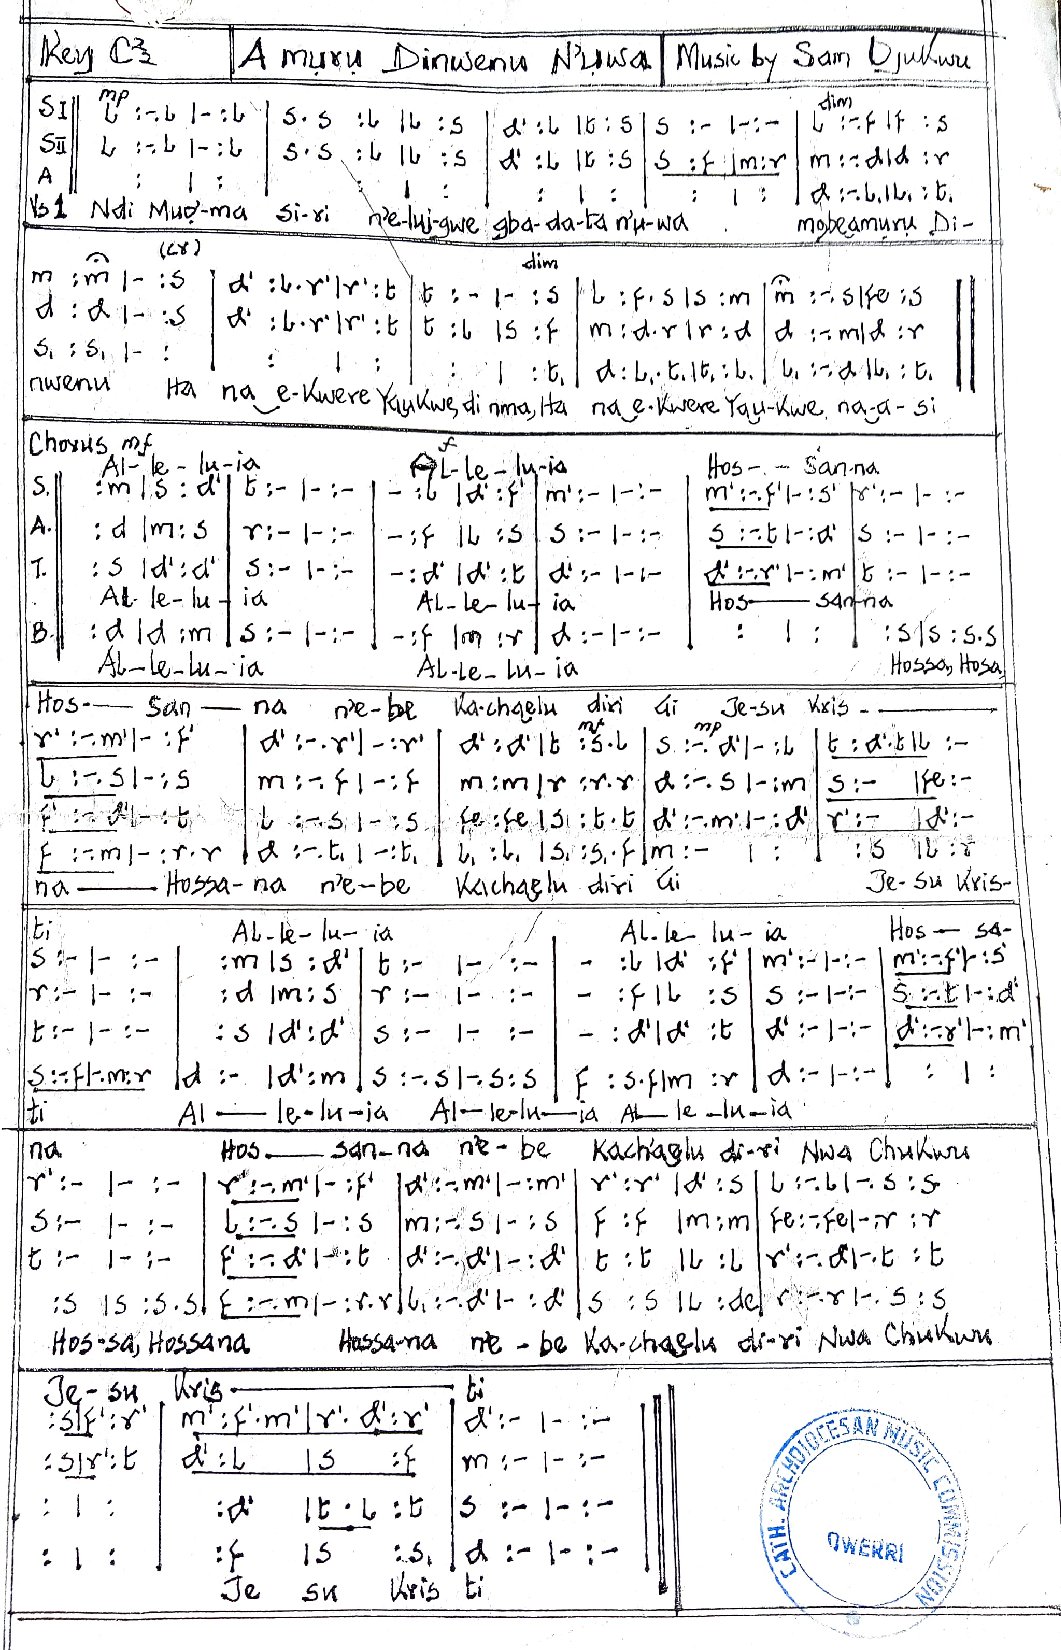 Key C 2/2 | A mụrụ Dinwenu N'ụwa | Music by Sam Ụjukwu
mp dim
SI L :-.L |- :L | s.s :L |L :s | d' :L |t :s | s :- |- :- | L :-.f |f :s
SII L :-.L |- :L | s.s :L |L :s | d' :L |t :s | s :f |m :r | m :-.d|d :r
A : | : | : | : | : | : | : | : | d :-.L,|L, :t,
Vs 1 Ndi Mụọ-ma si-ri n'e-luj-gwe gba-da-ta n'ụ-wa mọbeamụrụ Di-
(cr) dim
m :m |- :s | d' :L.r'|r' :t | t :- |- :s | L :f.s |s :m | m :-.s|fe :s
d :d |- :s | d' :L.r'|r' :t | t :L |s :f | m :d.r |r :d | d :-.m|d :r
s, :s, |- : | : | : | : | :t, | d :L,.t,|t, :L, | L, :-.d |L, :t,
nwenu Ha na e-kwere Yaụkwe, di nma, Ha na e-kwere Yaụ-kwe, na-a-si
Chorus mf f
Al-le-lu-ia Al-le-lu-ia Hos-- San-na
S. :m |s :d' | t :- |- :- | - :L |d' :f' | m' :- |- :- | m' :-.f'|- :s' | r' :- |- :-
A. :d |m :s | r :- |- :- | - :f |L :s | s :- |- :- | s :-.t|- :d' | s :- |- :-
T. :s |d' :d' | s :- |- :- | - :d' |d' :t | d' :- |- |- | d' :-.r'|- :m' | t :- |- :-
Al-le-lu-ia Al-le-lu-ia Hos—— san-na
B. :d |d :m | s :- |- :- | - :f |m :r | d :- |- :- | : | : | :s |s :s.s
Al-le-lu-ia Al-le-lu-ia Hossa, Hosa,
Hos-— San — na n'e-be Ka-chaelu diri Gi Je-su Kris-———
mf mp
r' :-.m'|- :f' | d' :-.r'|- :r' | d' :d' |t :s.L | s :-.d'|- :L | t :d'.t|L :-
L :-.s|- :s | m :-.f |- :f | m :m |r :r.r | d :-.s |- :m | s :- |fe :-
f' :-.d'|- :t | L :-.s |- :s | fe :fe |s :t.t | d' :-.m'|- :d' | r' :- |d' :-
f :-.m|- :r.r | d :-.t, |- :t, | L, :L, |s, :s,.f | m :- | : | :s |L :r
na —— Hossa-na n'e-be Kachaelu diri Gi Je-su Kris-
ti Al-le-lu-ia Al-le-lu-ia Hos— sa-
s :- |- :- | :m |s :d' | t :- |- :- | - :L |d' :f' | m' :- |- :- | m' :-.f'|- :s'
r :- |- :- | :d |m :s | r :- |- :- | - :f |L :s | s :- |- :- | s :-.t|- :d'
t :- |- :- | :s |d' :d' | s :- |- :- | - :d' |d' :t | d' :- |- :- | d' :-.r'|- :m'
s :-.f|-.m :r | d :- |d' :m | s :-.s|-.s :s | f :s.f|m :r | d :- |- :- | : | :
ti Al—— le-lu-ia Al—le-lu—ia Al— le-lu-ia
na Hos-— san-na n'e-be Kachaelu di-ri Nwa Chukwu
r' :- |- :- | r' :-.m'|- :f' | d' :-.m'|- :m' | r' :r' |d' :s | L :-.L|-.s :s
s :- |- :- | L :-.s |- :s | m :-.s |- :s | f :f |m :m | fe :-.fe|-.r :r
t :- |- :- | f' :-.d'|- :t | d' :-.d'|- :d' | t :t |L :L | r' :-.d'|-.t :t
:s |s :s.s | f :-.m|- :r.r | L, :-.d'|- :d' | s :s |L :de | r :-.r|-.s :s
Hos-sa, Hossana Hossa-na n'e-be Ka-chaelu di-ri Nwa Chukwu
Je-su Kris ———— ti
:s|f' :r' | m' :f'.m'|r'.d' :r' | d' :- |- :-
:s|r' :t | d' :L |s :f | m :- |- :-
: | : | :d' |t.L :t | s :- |- :-
: | : | :f |s :s, | d :- |- :-
Je su Kris ti
CATH. ARCHDIOCESAN MUSIC COMMISSION
OWERRI